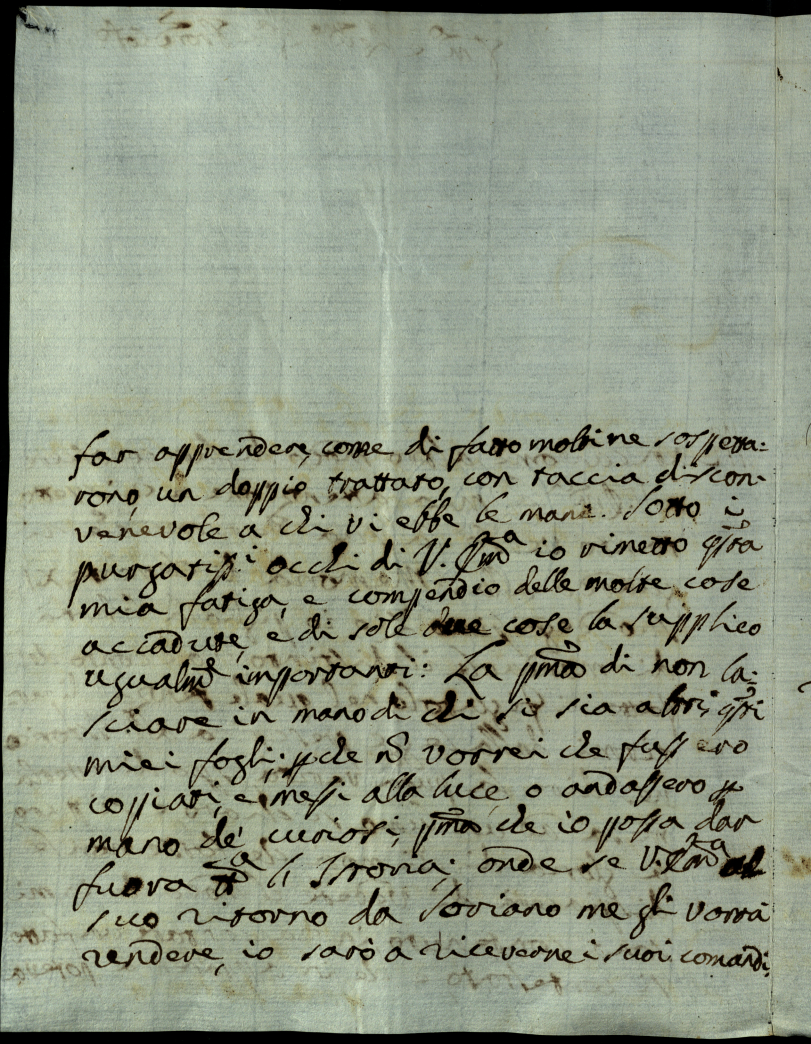 far apprendere, come di fatto molti ne sospetta-
rono, un doppio trattato, con taccia discon-
venevole a chi vi ebbe le mani. Sotto i
purgatiss.i occhi di V. Em.a io rimetto qsta
mia fatiga, e compendio delle molte cose
accadute, e di sole due cose la supplico
ugualmte importanti: La pma di non la-
sciare in mano di chi si sia altri qsti
miei fogli; pche nō vorrei che fussero
coppiati, e messi alla luce, o andassero p
mano de' curiosi, pma che io possa dar
fuora tta l'Istoria; onde se V. Em.a al
suo ritorno da Soriano me gli vorrà
rendere, io sarò a riceverne i suoi comandi,